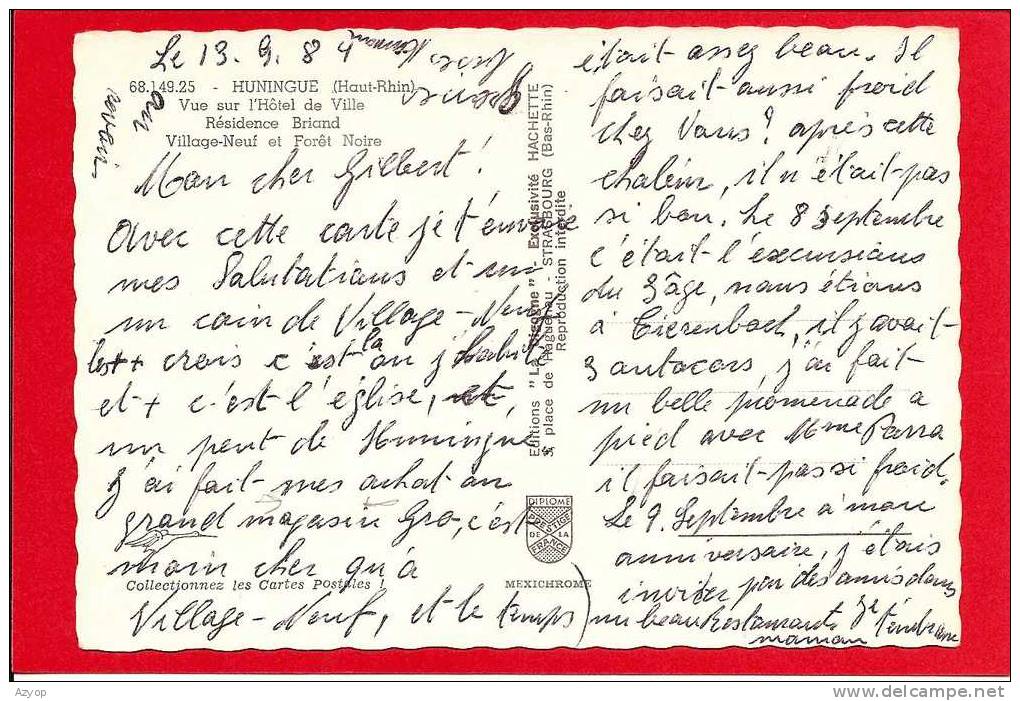 Le 13. 9. 84
68.149.25 - HUNINGUE (Haut-Rhin)
Vue sur l'Hôtel de Ville
Résidence Briand
Village-Neuf et Forêt Noire
au
revoir
Mon cher Gilbert!
avec cette carte je t'envoie
mes Salutations et un
un coin de Village-Neuf
les ++ crois c'est la ou j'habite
et + c'est l'église, et,
un peut de Huningue
J'ai fait mes achat au
grand magasin Gro, c'est
moin cher qu'à
Village-Neuf, et le temps
Collectionnez les Cartes Postales !
MEXICHROME
Editions "La Cigogne" - Exclusivité HACHETTE
5, place de Haguenau - STRASBOURG (Bas-Rhin)
Reproduction interdite
DIPLOME
PRESTIGE
DE LA
FRANCE
était assez beau. Il
faisait aussi froid
chez Vous? après cette
chaleur, il n'était pas
si bon. Le 8 Septembre
c'était l'excursions
du 3âge, nous étions
à Tierenbach, il y avait
3 autocars, j'ai fait
un belle promenade a
pied avec Mme Parra
il faisait pas si froid.
Le 9. Septembre à mon
anniversaire, j'étais
inviter par des amis dans
un beau Restaurant. Je
t'embrasse
maman
Azyop
http://www.delcampe.net